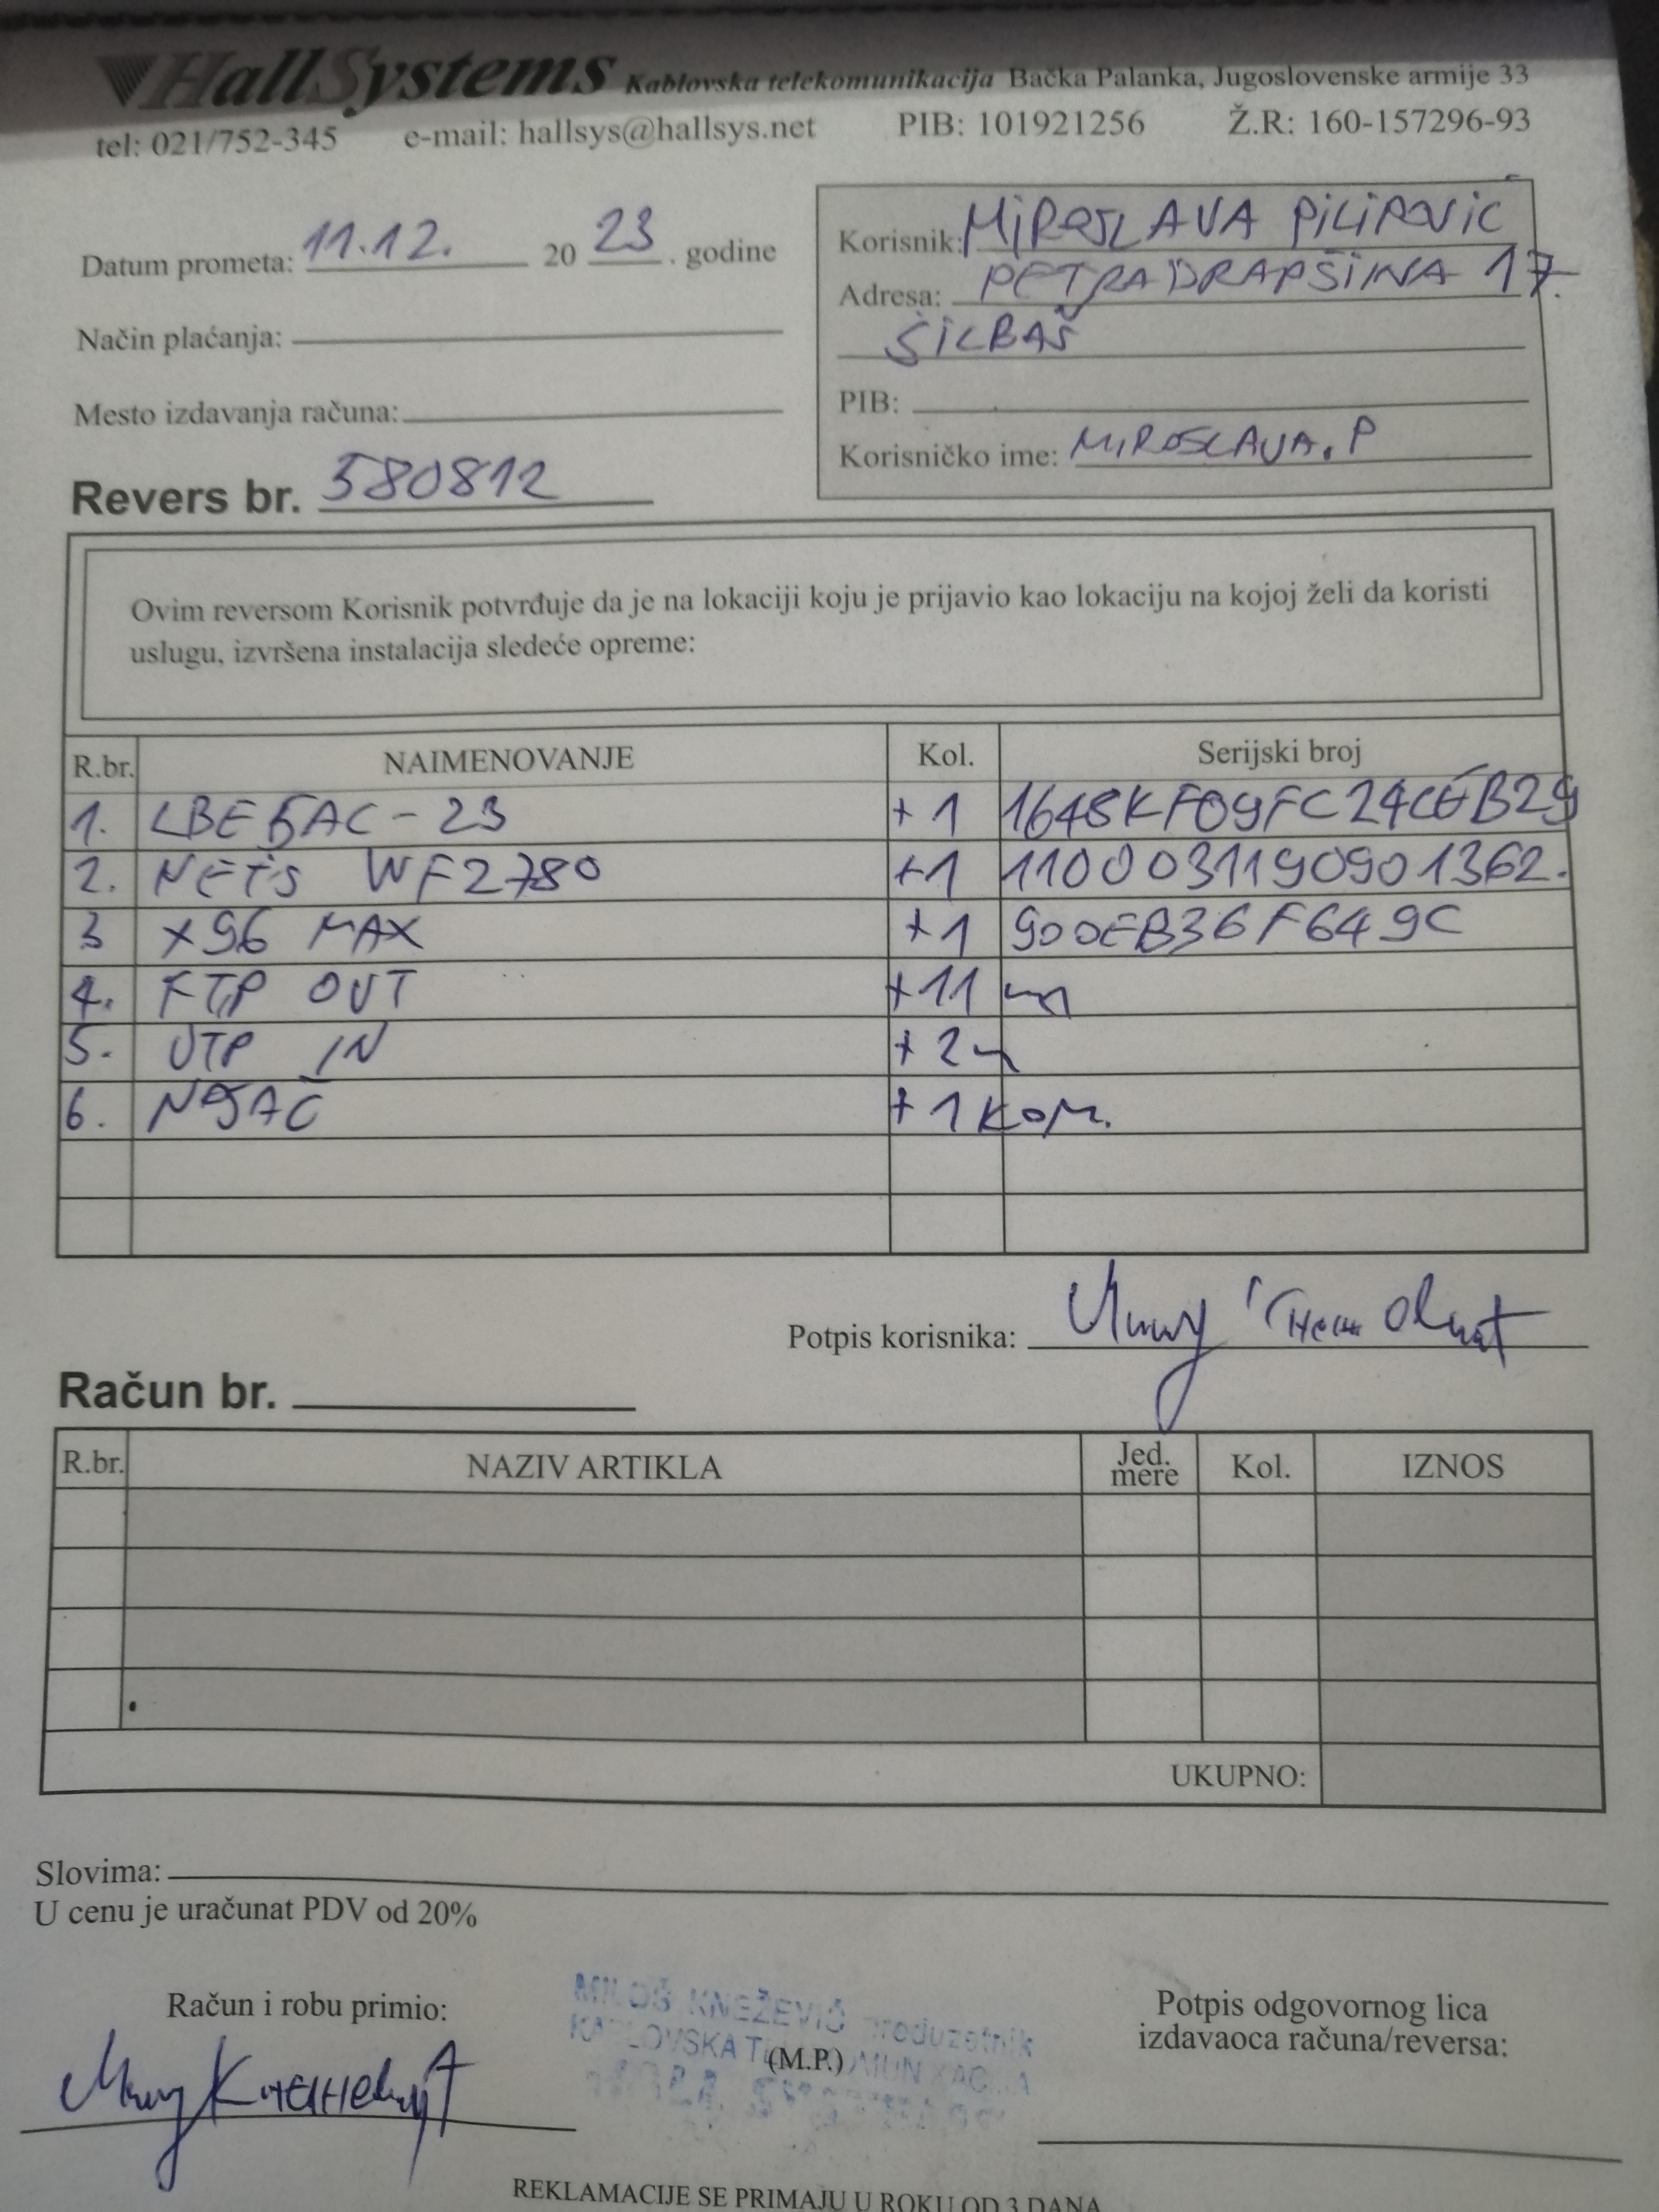 HallSystems Kablovska telekomunikacija Bačka Palanka, Jugoslovenske armije 33
tel: 021/752-345 e-mail: hallsys@hallsys.net PIB: 101921256 Ž.R: 160-157296-93
Datum prometa: 11.12. 20 23 . godine
Način plaćanja:
Mesto izdavanja računa:
Revers br. 580812
Korisnik: MIROSLAVA PILIPOVIĆ
Adresa: PETRA DRAPŠINA 17
ŠILBAŠ
PIB:
Korisničko ime: MIROSLAVA.P
Ovim reversom Korisnik potvrđuje da je na lokaciji koju je prijavio kao lokaciju na kojoj želi da koristi
uslugu, izvršena instalacija sledeće opreme:
R.br. NAIMENOVANJE Kol. Serijski broj
1. LBE5AC-23 +1
2. NETIS WF2780 +1 1100031190901362.
3 X96 MAX +1 900EB36F649C
4. FTP OUT +11 m
5. UTP IN +2m
6. NOSAČ +1 KOM.
Potpis korisnika:
Račun br.
R.br. NAZIV ARTIKLA Jed. mere Kol. IZNOS
UKUPNO:
Slovima:
U cenu je uračunat PDV od 20%
Račun i robu primio:
MILOŠ KNEŽEVIĆ preduzetnik
KABLOVSKA TELEKOMUNIKACIJA
(M.P.)
Potpis odgovornog lica
izdavaoca računa/reversa:
REKLAMACIJE SE PRIMAJU U ROKU OD 3 DANA